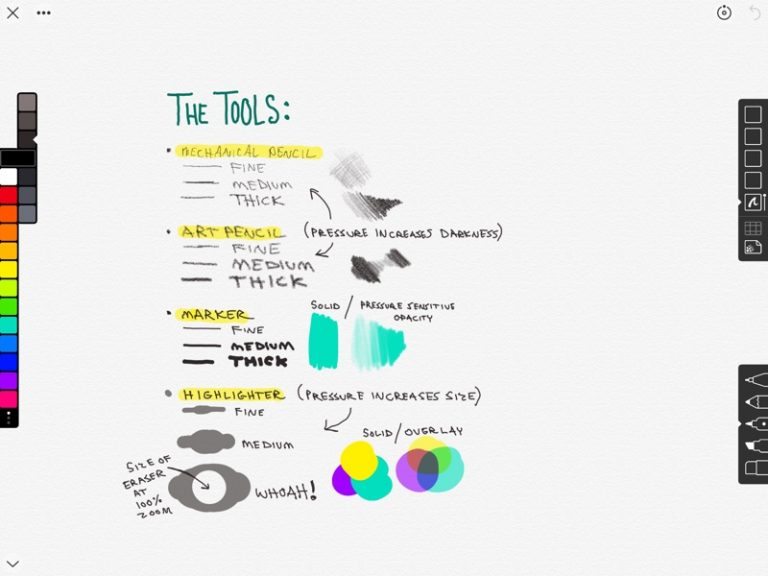 THE TOOLS:
• MECHANICAL PENCIL
FINE
MEDIUM
THICK
• ART PENCIL (PRESSURE INCREASES DARKNESS)
FINE
MEDIUM
THICK
SOLID / PRESSURE SENSITIVE
OPACITY
• MARKER
FINE
MEDIUM
THICK
• HIGHLIGHTER (PRESSURE INCREASES SIZE)
FINE
SOLID/OVERLAY
MEDIUM
SIZE OF
ERASER
AT
100%
ZOOM
WHOAH!